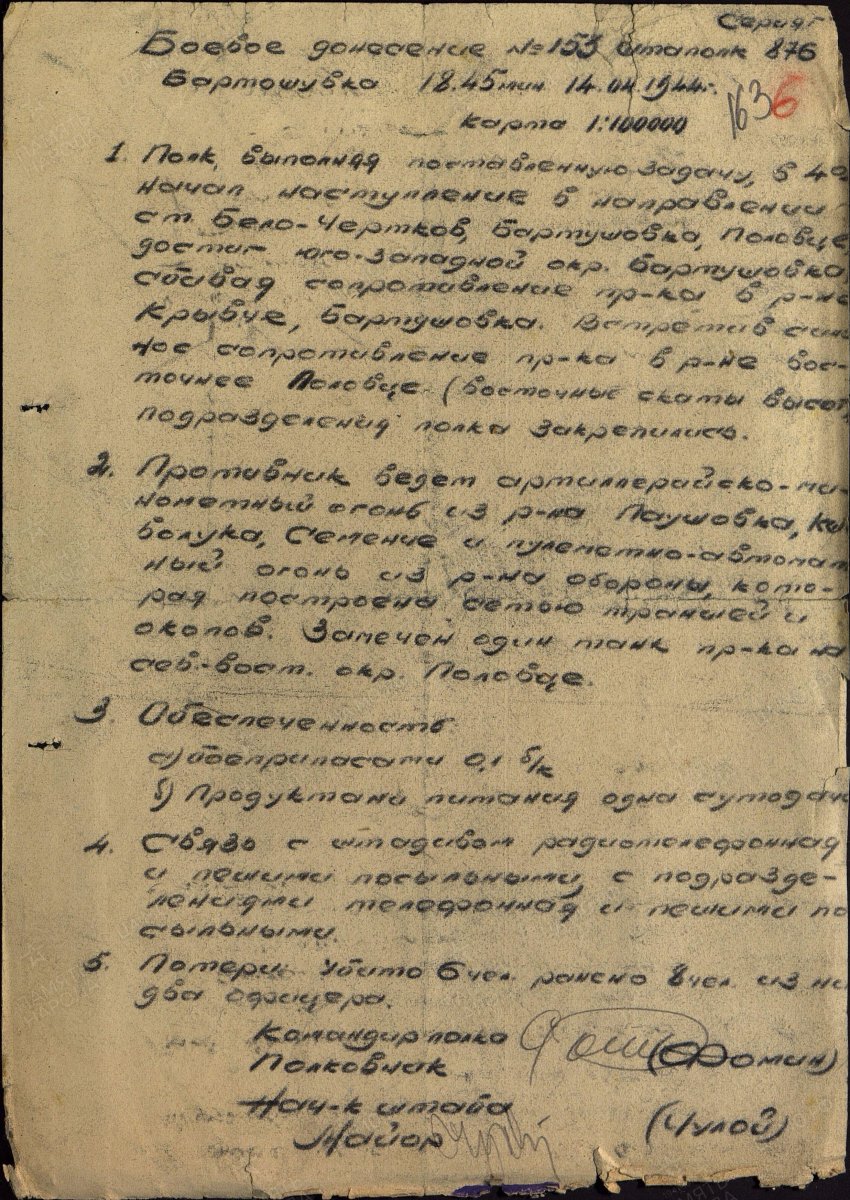 Серия Г
Боевое донесение №153 штаполк 876
Бартошувка 18.45 мин 14.04.1944г.
163 6
карта 1:100000
1. Полк, выполняя поставленную задачу, в 4
начал наступление в направлении
ст. Бело-Чертков, Бартушовка, Половце
достиг юго-западной окр. Бартушовка
сбивая сопротивление пр-ка в р-не
Крывче, Бартушовка. Встретив силь
ное сопротивление пр-ка в р-не вос-
точнее Половце (восточные скаты высот
подразделения полка закрепились.
2. Противник ведет артиллерийско-ми-
нометный огонь из р-на Паушовка,
болука, Семение и пулеметно-автомат
ный огонь из р-на обороны, кото-
рая построена сетью траншей и
окопов. Замечен один танк пр-ка на
сев-вост. окр. Половце.
3. Обеспеченность
а) Боеприпасами 0,1 б/к
б) Продуктами питания одна сутодача
4. Связь с штадивом радиотелефонная
и пешими посыльными, с подразде-
лениями телефонная и пешими по
сыльными.
5. Потери: Убито 6 чел. ранено 8 чел. из ни
два офицера.
Командир полка
Полковник (Фомин)
Нач-к штаба
Майор (Чулой)